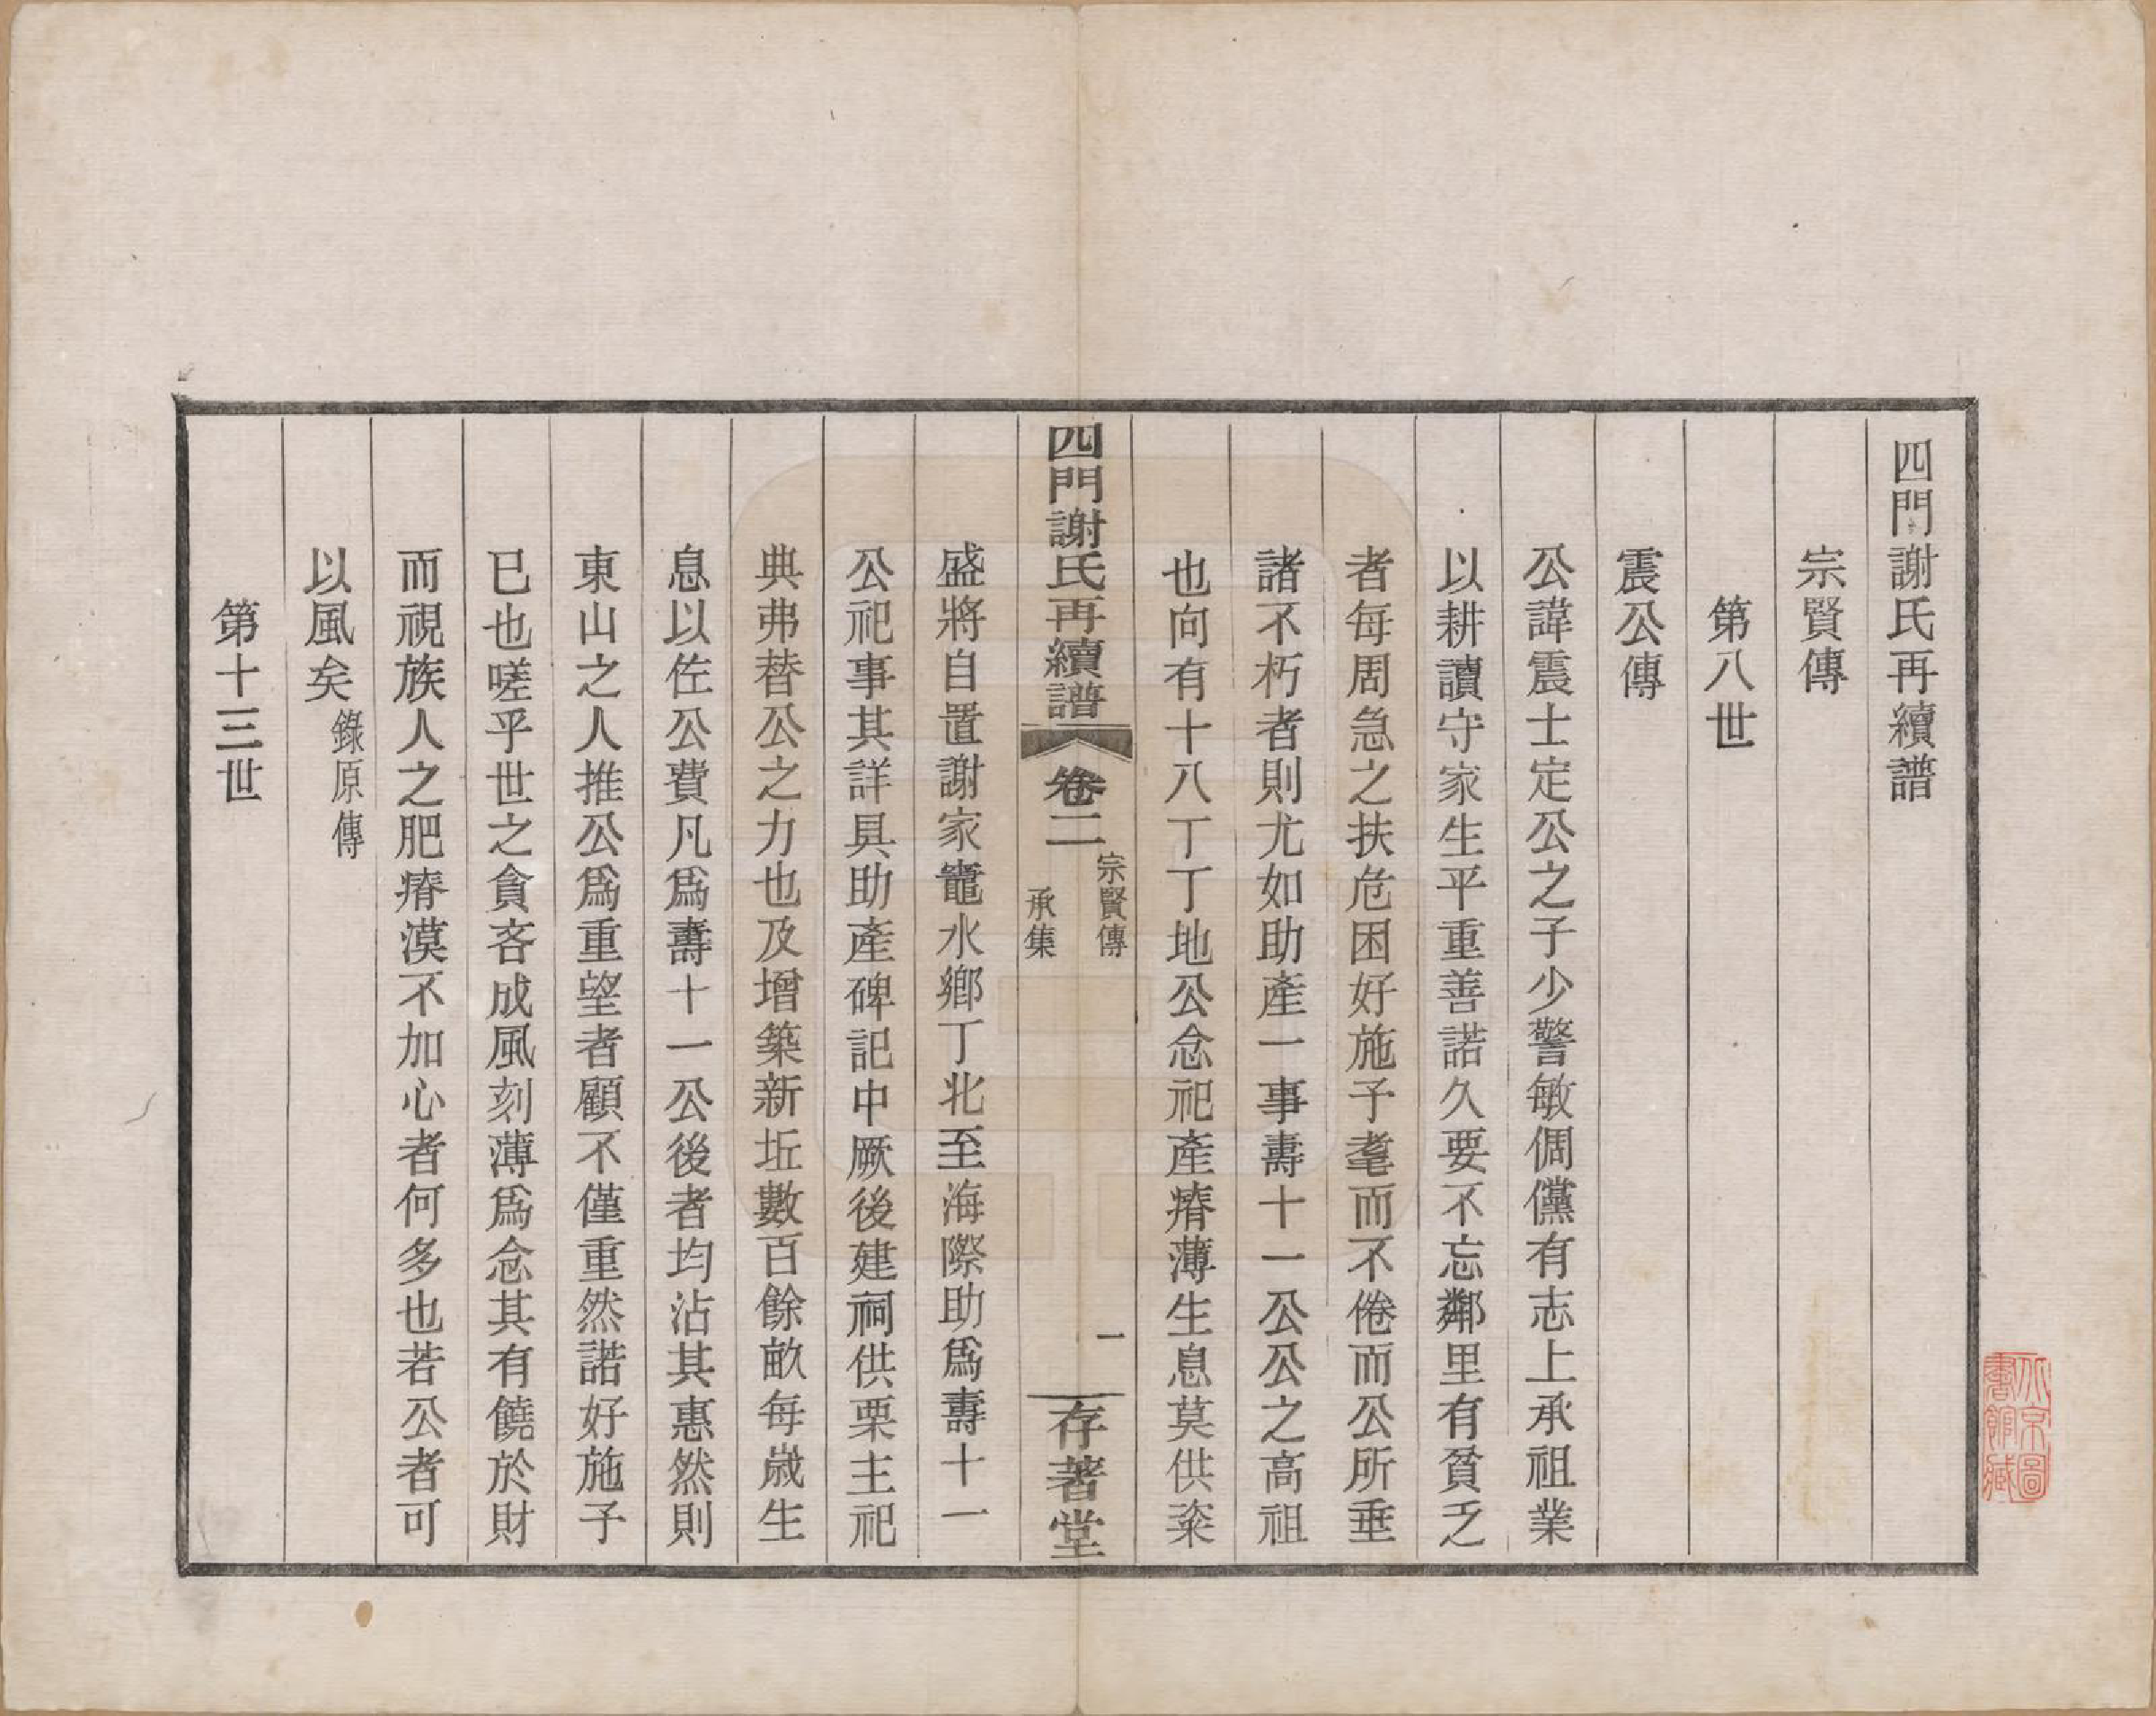 四門謝氏再續譜
宗賢傳
第八世
震公傳
公諱震士定公之子少警敏倜儻有志上承祖業
以耕讀守家生平重善諾久要不忘鄰里有貧乏
者每周急之扶危困好施予耄而不倦而公所垂
諸不朽者則尤如助產一事壽十一公公之高祖
也向有十八丁丁地公念祀產瘠薄生息莫供粢
四門謝氏再續譜
卷二
宗賢傳
承集
一
存著堂
盛將自置謝家竈水鄉丁北至海際助爲壽十一
公祀事其詳具助產碑記中厥後建祠供栗主祀
典弗替公之力也及增築新坵數百餘畝每歲生
息以佐公費凡爲壽十一公後者均沾其惠然則
東山之人推公爲重望者顧不僅重然諾好施予
已也嗟乎世之貪吝成風刻薄爲念其有饒於財
而視族人之肥瘠漠不加心者何多也若公者可
以風矣錄原傳
第十三世
北京圖
書館藏